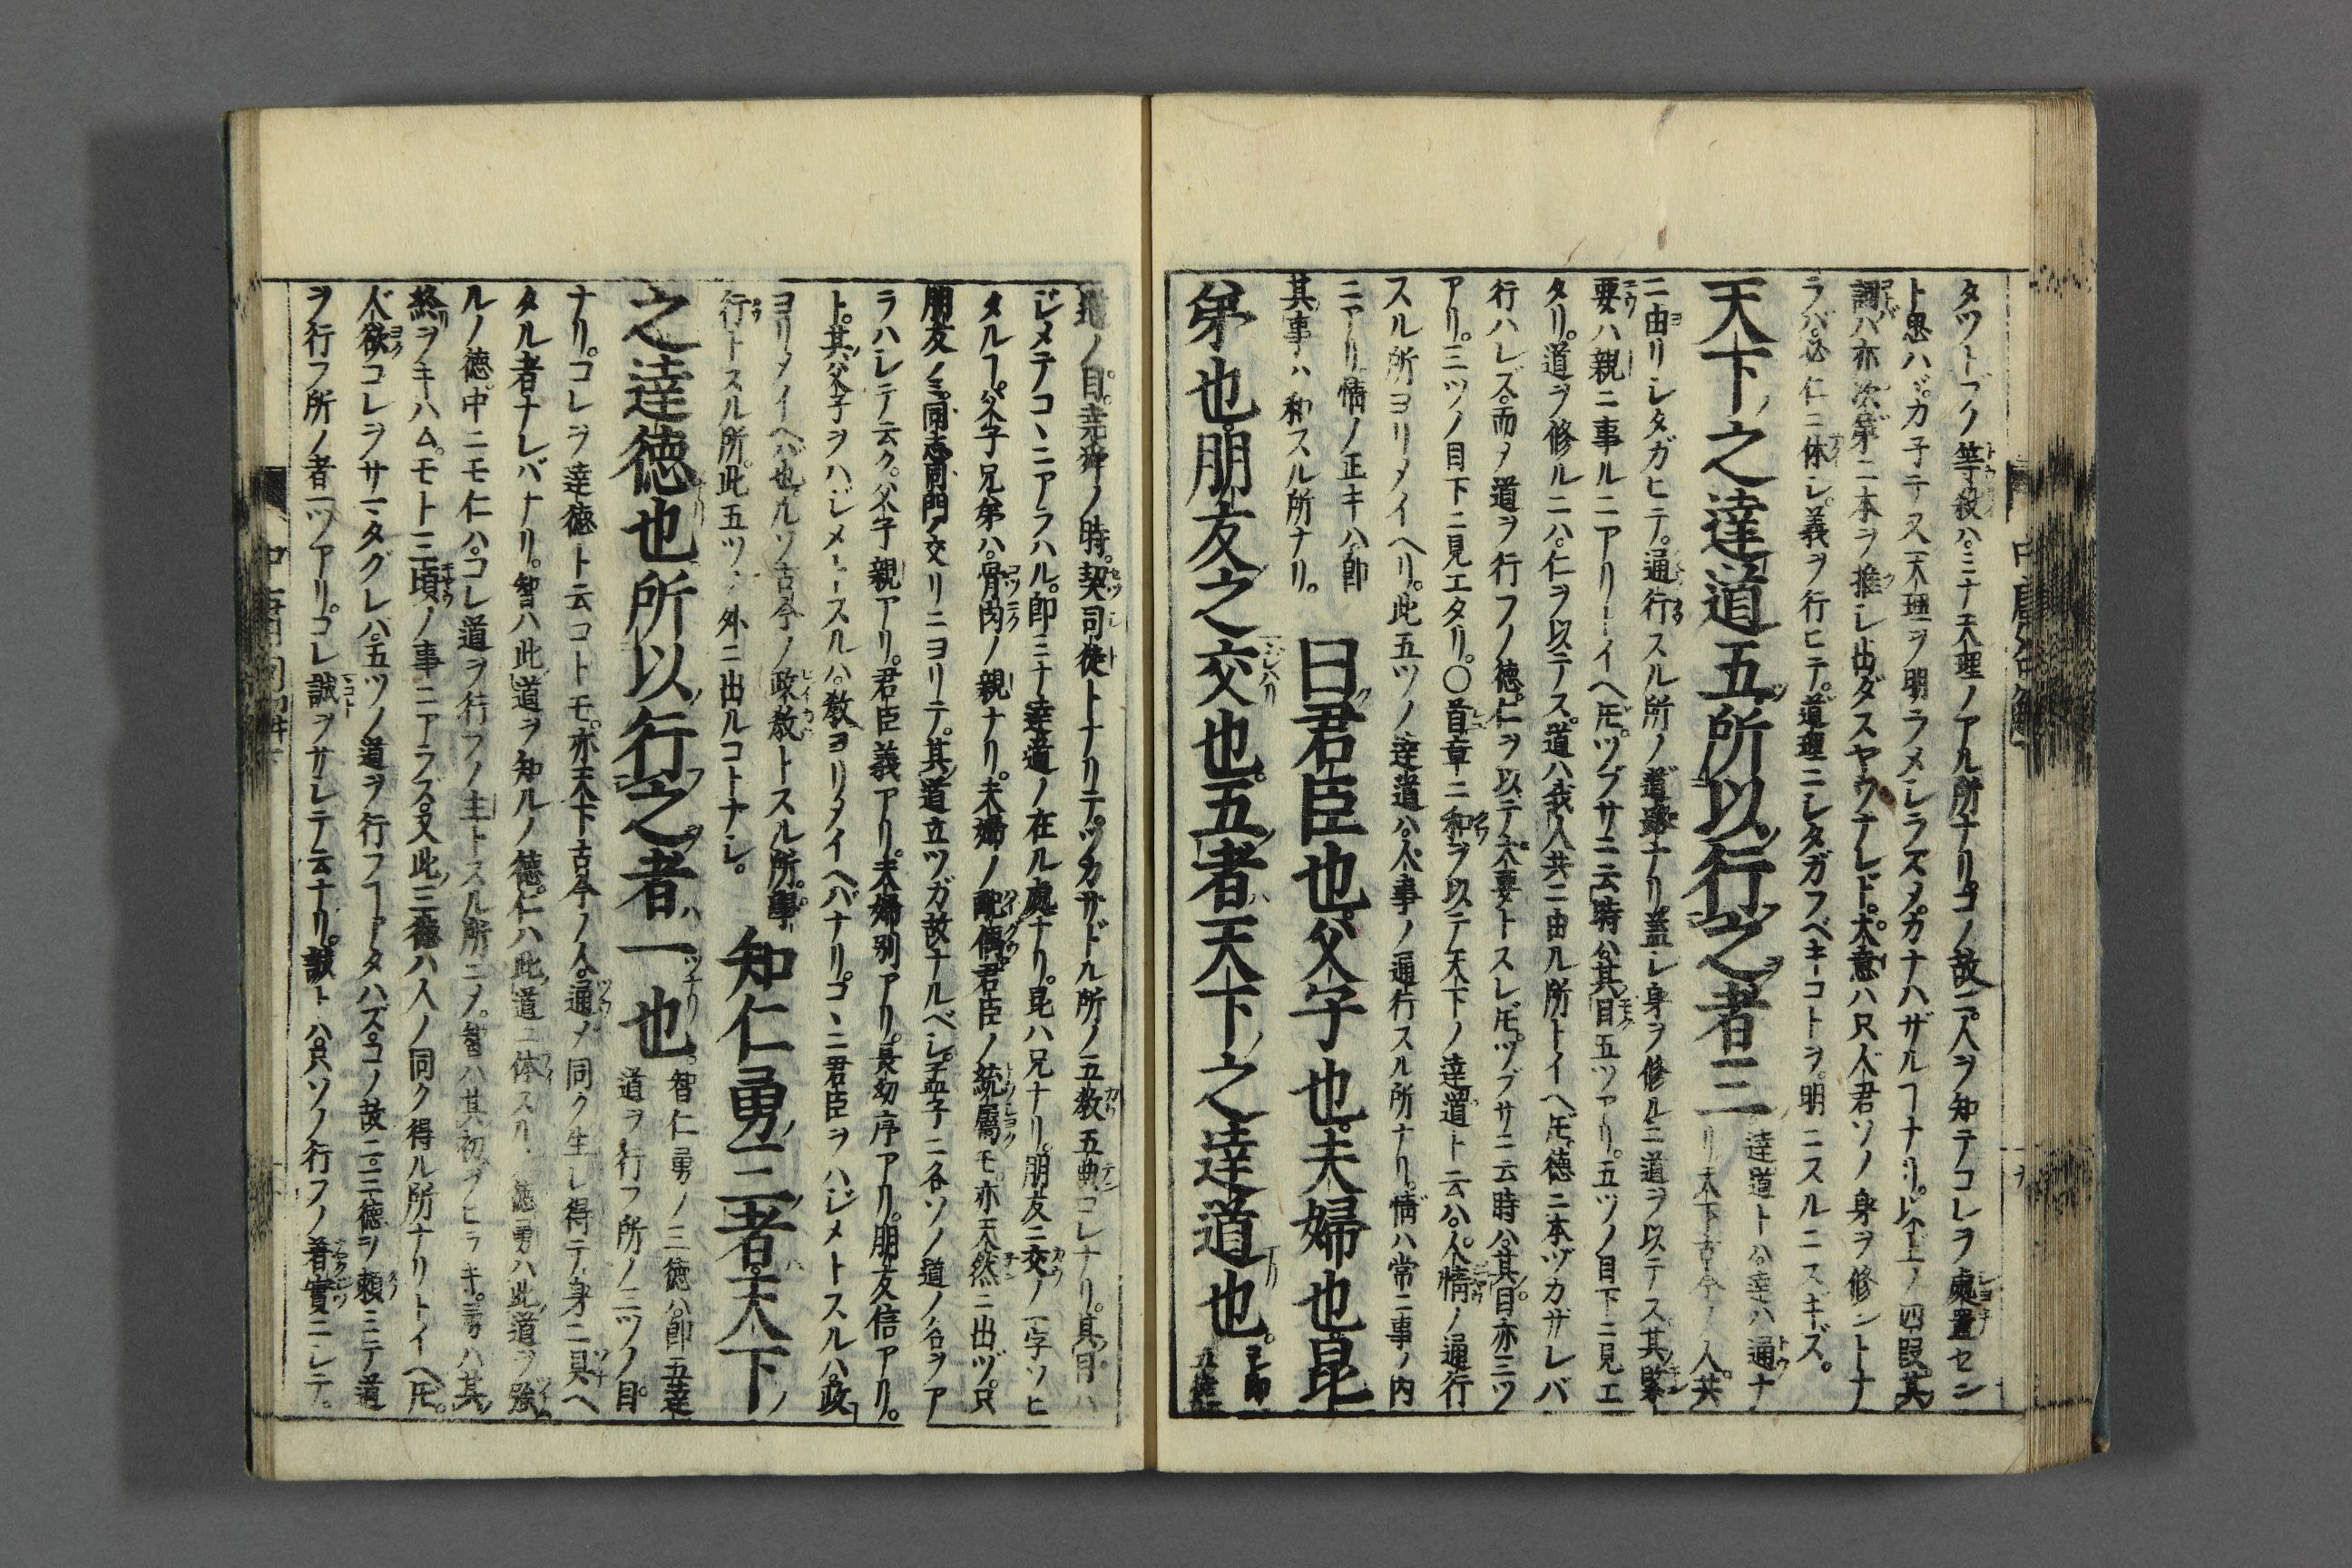 タツトブノ等殺ハ。ミナ天理ノアル所ナリ。コノ故ニ。人ヲ知テコレヲ處置セン
ト思ハヾ。カ子テ又天理ヲ明ラメシラズメ。カナハザルヿナリ。以上ノ四段。其
詞ハ亦次第ニ本ヲ推シ出ダスヤウナレドモ。大意ハ只人君ソノ身ヲ修ントナ
ラバ。必仁ニ体シ。義ヲ行ヒテ。道理ニシタガフベキコトヲ。明ニスルニスギズ。
天下之達道五所以行之者三
達道トハ。達ハ通ナ
リ。天下古今ノ人。共
ニ由リシタガヒテ。通行スル所ノ道路ナリ。蓋シ身ヲ修ルニ道ヲ以テス。其緊
要ハ親ニ事ルニアリトイヘ𪜈。ツブサニ云時ハ。其目五ツアリ。五ツノ目下ニ見エ
タリ。道ヲ修ルニハ。仁ヲ以テス。道ハ我人共ニ由ル所トイヘ𪜈。徳ニ本ヅカザレバ
行ハレズ。而メ道ヲ行フノ徳。仁ヲ以テ大要トスレ𪜈。ツブサニ云時ハ。其目亦三ツ
アリ。三ツノ目下ニ見エタリ。〇首章ニ和ヲ以テ天下ノ達道ト云ハ。人情ノ通行
スル所ヨリメイヘリ。此五ツノ達道ハ。人事ノ通行スル所ナリ。情ハ常ニ事ノ内
ニアリ。情ノ正キハ。即
其事ハ和スル所ナリ。
曰君臣也父子也夫婦也昆
弟也朋友之交也五者天下之達道也
五達
道ノ目。堯舜ノ時。契司徒トナリテ。ツカサドル所ノ五教五典コレナリ。其目ハ
ジメテコヽニアラハル。即ミナ達道ノ在ル處ナリ。昆ハ兄ナリ。朋友ニ交ノ一字ソヒ
タルヿ。父子兄弟ハ。骨肉ノ親ナリ。夫婦ノ配偶。君臣ノ統屬モ。亦天然ニ出ヅ。只
朋友ノミ。同志同門ノ交リニヨリテ。其道立ツガ故ナルベシ。孟子ニ各ソノ道ノ名ヲア
ラハシテ云ク。父子親アリ。君臣義アリ。夫婦別アリ。長幼序アリ。朋友信アリ。
ト。其父子ヲハジメトスルハ。教ヨリメイヘバナリ。コヽニ君臣ヲハジメトスルハ。政
ヨリメイヘバ也。ルソ古今ノ政教トスル所。事
行トスル所。此五ツノ外ニ出ルコトナシ。
知仁勇三者天下
之達徳也所以行之者一也
智仁勇ノ三徳ハ。即五達
道ヲ行フ所ノ三ツノ目
ナリ。コレヲ達徳ト云コトモ。亦天下古今ノ人。通メ同ク生レ得テ。身ニ具ヘ
タル者ナレバナリ。智ハ此道ヲ知ルノ徳。仁ハ此道ニ体スルノ徳。勇ハ此道ヲ強
ルノ徳。中ニモ仁ハ。コレ道ヲ行フノ主トスル所ニメ。智ハ其初ヲヒラキ。勇ハ其
終ヲキハム。モト三項ノ事ニアラズ。又此三徳ハ人ノ同ク得ル所ナリトイヘ𪜈。
人欲コレヲサマタグレバ。五ツノ道ヲ行フヿアタハズ。コノ故ニ。三徳ヲ頼ミテ道
ヲ行フ所ノ者一ツアリ。コレ誠ヲサシテ云ナリ。誠トハ。只ソノ行フノ着實ニシテ。